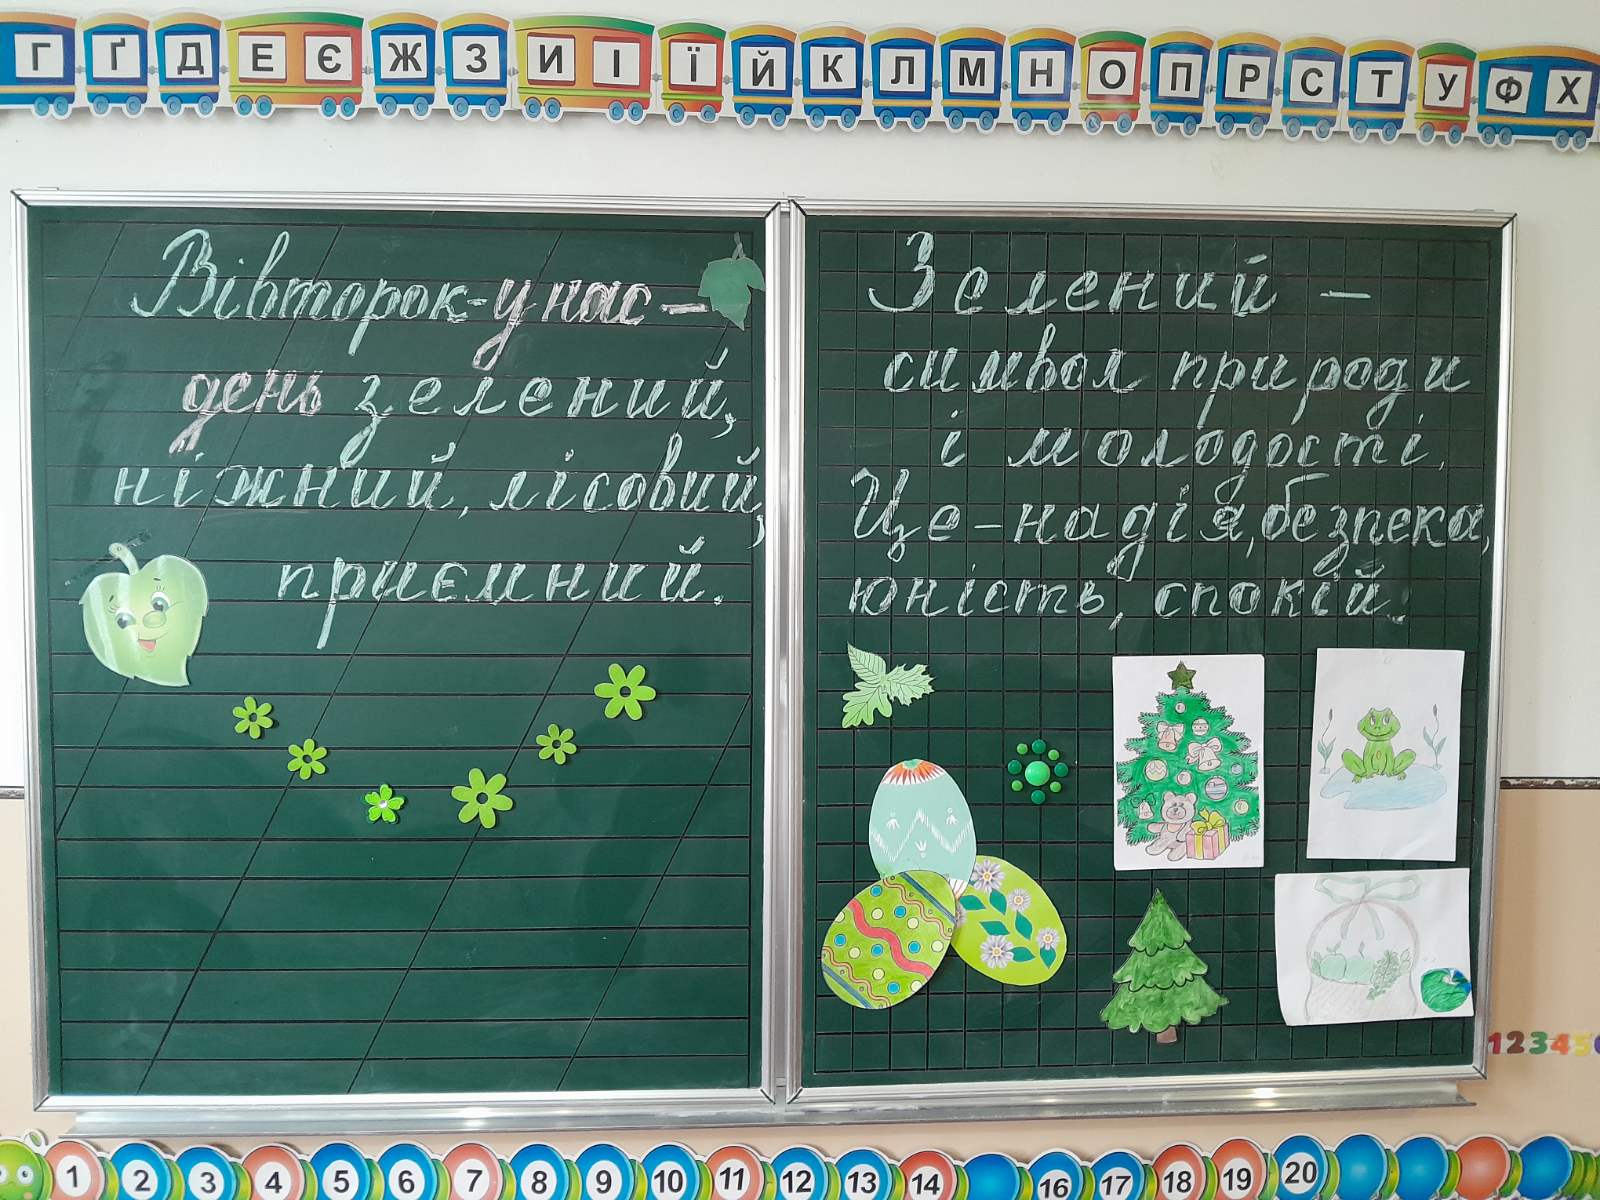 Г Ґ Д Е Є Ж З И І Ї Й К Л М Н О П Р С Т У Ф Х
Вівторок - у нас -
день зелений,
ніжний, лісовий,
приємний.
Зелений -
символ природи
і молодості.
Це - надія, безпека,
юність, спокій.
12345
1 2 3 4 5 6 7 8 9 10 11 12 13 14 16 17 18 19 20